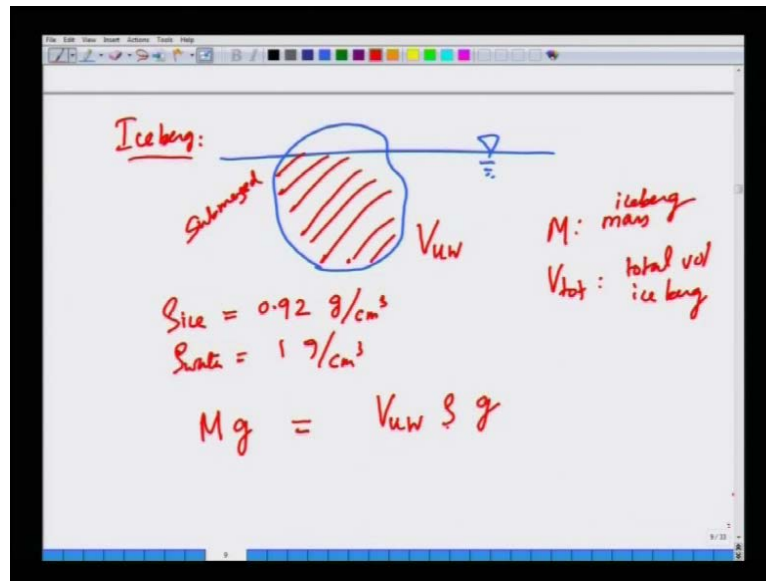 File Edit View Insert Actions Tools Help
Iceberg:
submerged
Vuw
M: iceberg mass
Vtot: total vol ice berg
ρice = 0.92 g/cm³
ρwater = 1 g/cm³
Mg = Vuw ρ g
9/33
9